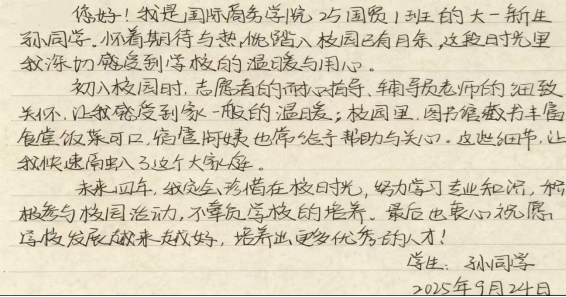 你好！我是国际商务学院25国贸1班的大一新生
孙同学。怀着期待与热忱踏入校园已有月余，这段时光里
我深切感受到学校的温暖与用心。
初入校园时，志愿者的耐心指导、辅导员老师的细致
关怀，让我感受到家一般的温暖；校园里，图书馆藏书丰富
食堂饭菜可口，宿管阿姨也常给予帮助与关心。这些细节，让
我快速融入了这个大家庭。
未来四年，我定会珍惜在校时光，努力学习专业知识，积
极参与校园活动，不辜负学校的培养。最后也衷心祝愿
学校发展越来越好，培养出更多优秀的人才！
学生：孙同学
2025年9月24日